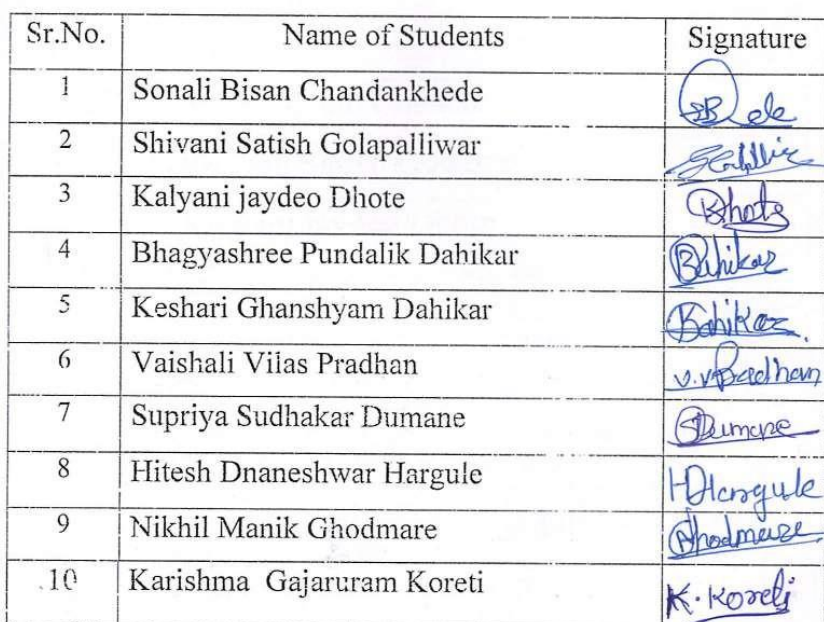 Sr.No. Name of Students Signature
1 Sonali Bisan Chandankhede
2 Shivani Satish Golapalliwar
3 Kalyani jaydeo Dhote Dhote
4 Bhagyashree Pundalik Dahikar Dahikar
5 Keshari Ghanshyam Dahikar Dahikar
6 Vaishali Vilas Pradhan v.v Pradhan
7 Supriya Sudhakar Dumane Dumane
8 Hitesh Dnaneshwar Hargule HDHargule
9 Nikhil Manik Ghodmare Ghodmare
10 Karishma Gajaruram Koreti K. Koreti